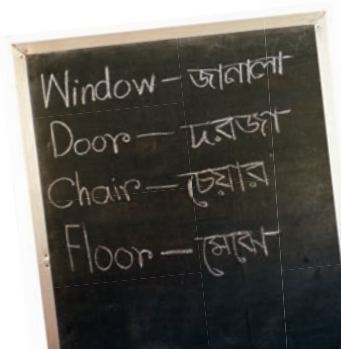 Window – জানালা
Door – দরজা
Chair – চেয়ার
Floor – মেঝে